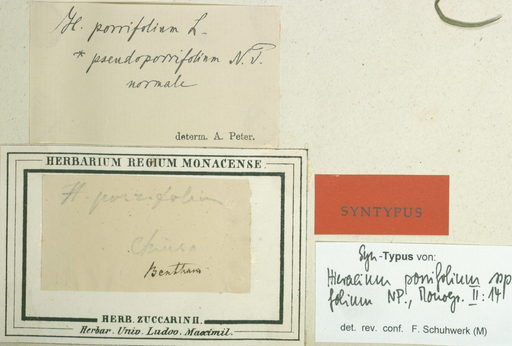 H. porrifolium L.
* pseudoporrifolium N. P.
normale
determ. A. Peter.
HERBARIUM REGIUM MONACENSE.
H. porrifolium
Bentham
HERB. ZUCCARINII.
Herbar. Univ. Ludov. Maximil.
SYNTYPUS
Syn-Typus von:
Hieracium porrifolium ssp
folium NP., Monogr. II: 141
det. rev. conf. F. Schuhwerk (M)